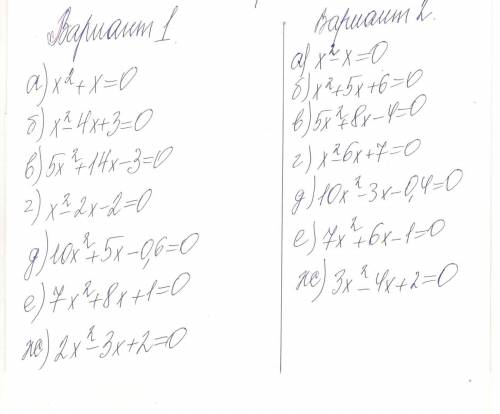 Вариант 1.
а) x²+x=0
б) x²-4x+3=0
в) 5x²+14x-3=0
г) x²-2x-2=0
д) 10x²+5x-0,6=0
е) 7x²+8x+1=0
ж) 2x²-3x+2=0
Вариант 2.
а) x²-x=0
б) x²+5x+6=0
в) 5x²+8x-4=0
г) x²-6x+7=0
д) 10x²-3x-0,4=0
е) 7x²+6x-1=0
ж) 3x²-4x+2=0